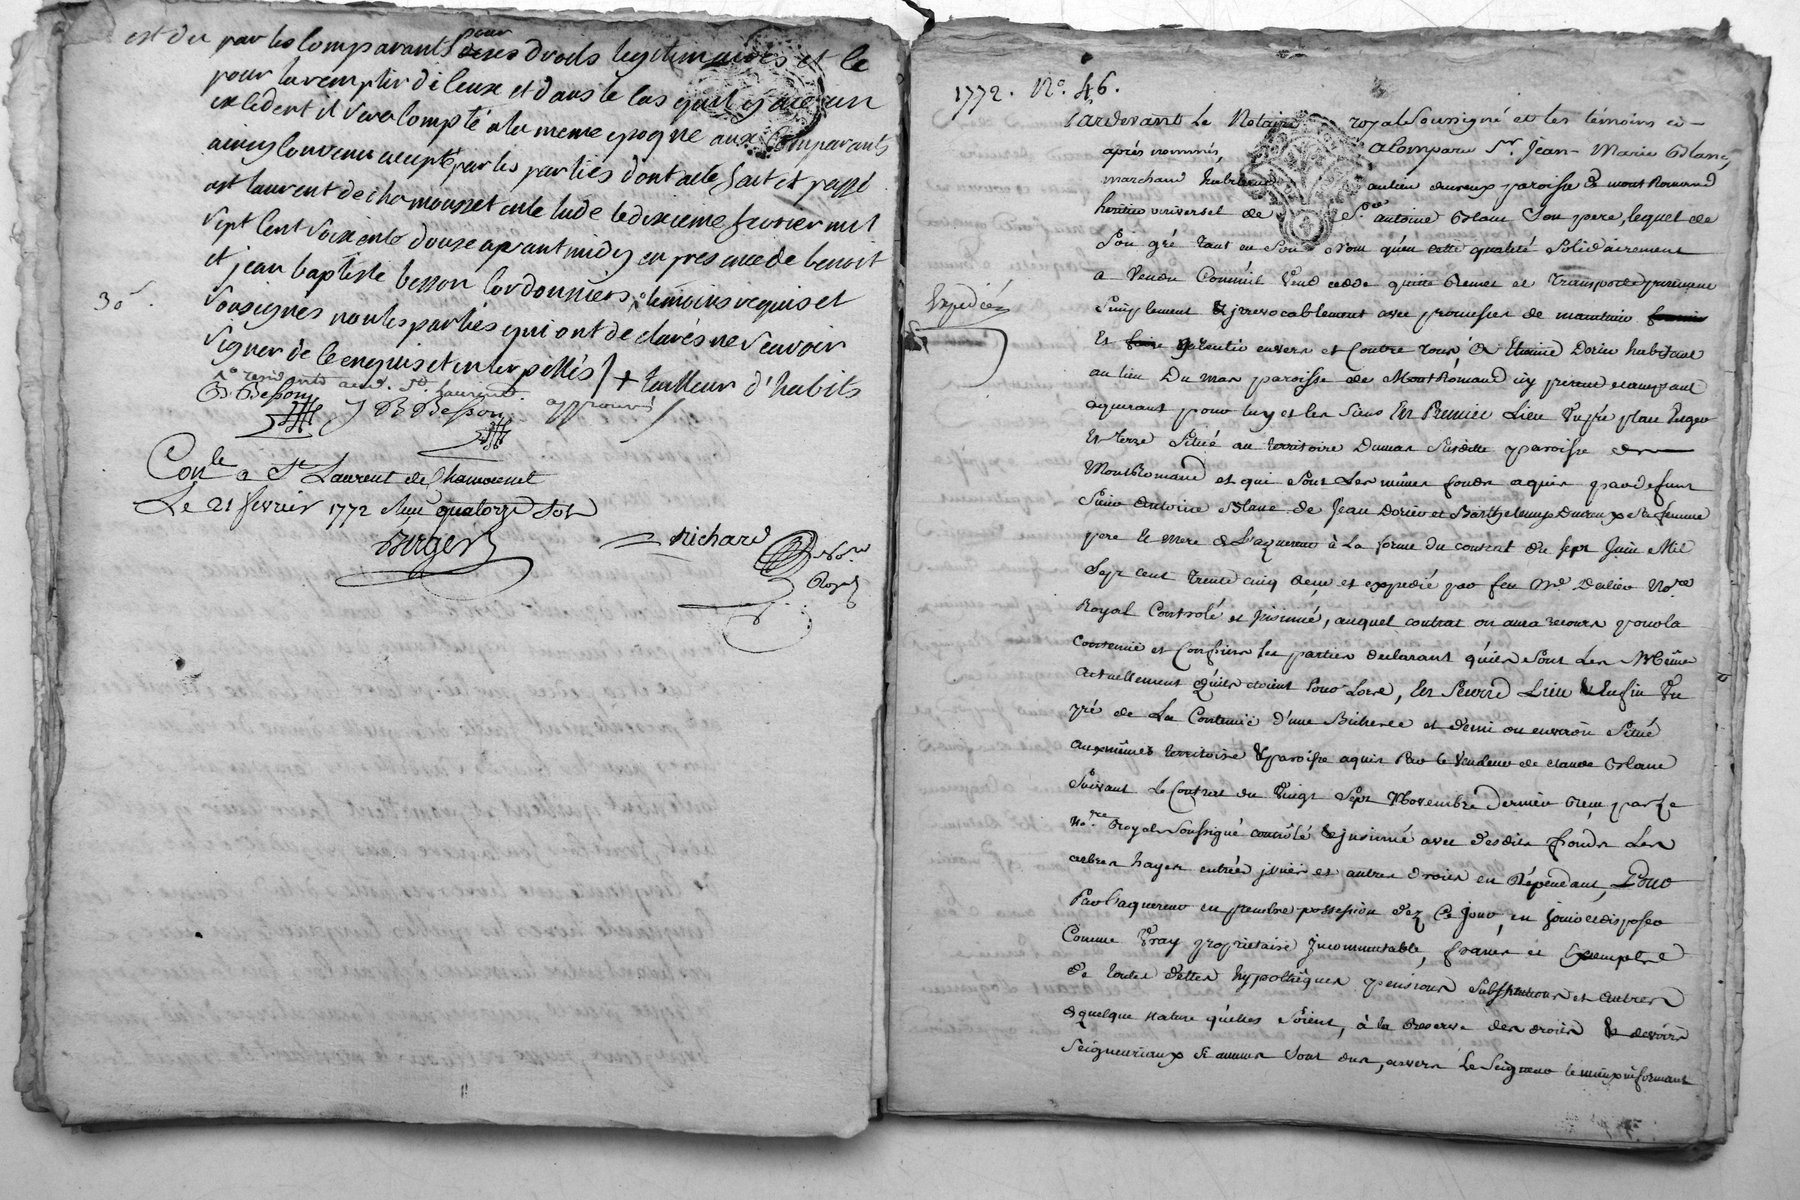 est du par les comparants pour ses droits legitimaires et le
pour la remplir d'iceux et dans le cas quil y auc un
excedent il sera compté a la meme epoque aux comparants
ainsy convenu accepté par les parties dont acte fait et passé
a st laurent de chamousset en letude le dixieme fevrier mil
sept cent soixante douze avant midy en presence de benoit
et jean baptiste besson cordonniers, temoins requis et
30 s.
soussignés non les parties qui ont declarés ne scavoir
signer de ce enquis et interpellés / + tailleur d'habits
residents aud. St. Laurent approuvé
B Besson J B Besson
Con.le a St Laurent de Chamousset
Le 21 fevrier 1772 Reçu quatorze sols
Berger
Richard
No.re
Royal
1772. N.o 46.
Pardevant Le Notaire royal Soussigné et les témoins cy-
aprés nommés, a Comparu S.r Jean-Marie Blanc
marchand habitant au lieu paroisse de mont Romand
heritier universel de S.r antoine Blanc Son pere, lequel de
Son gré tant en Son nom qu'en cette qualité Solidairement
a vendu Comme il vend cedde quitte Remet et transporte purement
Simplement & irrevocablement avec promesses de maintenir
Expedié
Et garantie envers et Contre tous, à Etienne Dorieu habitant
au lieu Du mas paroisse de Mont Romand icy present et acceptant
aquerant pour luy et les Siens En Premier Lieu Un pré plan verger
Et terre Situé au territoire Dumas Susditte paroisse de
Mont Romand et qui Sont Les mêmes fonds aquis par defunt
Sieur Antoine Blanc de Jean Dorieu et Barthelemye Duraux Sa femme
pere et mere de L'aquereur à La forme du contrat du sept Juin Mil
Sept cent trente cinq Reçu et expedié par feu M.e Dulieu No.re
Royal Controlé et Insinué, auquel contrat on aura recours pour la
contenue et Confins les parties declarant qu'ils Sont Les Mêmes
actuellement qu'ils etoient pour Lors, En Second Lieu & Enfin Un
pré de La Contenue d'une Bicherée et demi ou environ Situé
aux mêmes territoire & paroisse aquis Par le Vendeur de claude Blanc
Suivant Le Contrat du Vingt Sept Novembre dernier Reçu par le
No.re Royal Soussigné controlé & insinué avec desdits fonds Les
arbres hayes entrées issües et autres droits en Dépendant, Pour
Par L'aquereur en prendre possession dez Ce Jour en jouir et disposer
Comme Vray proprietaire Incommutable, francs et Exempts
de toutes dettes hypothéques pensions Substitutions et autres
de quelque nature qu'elles Soient, à la Reserve des droits & devoirs
Seigneuriaux Si aucuns Sont dus, envers Le Seigneur le mieux informant